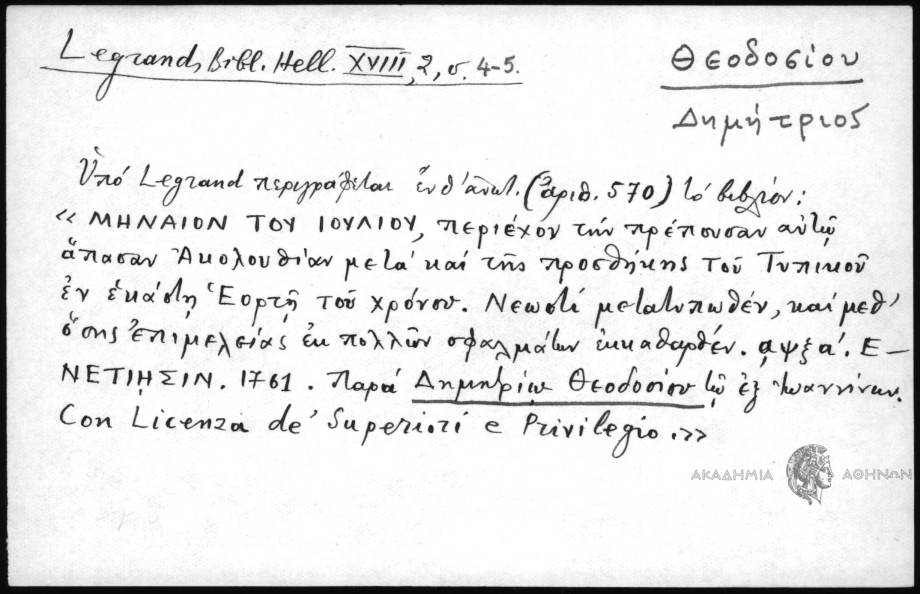 Legrand, Bibl. Hell. XVIII, 2, σ. 4-5.
Θεοδοσίου
Δημήτριος
Ὑπό Legrand περιγράφεται ἐνθ' ἀνωτ. (ἀριθ. 570) τό βιβλίον:
« ΜΗΝΑΙΟΝ ΤΟΥ ΙΟΥΛΙΟΥ, περιέχον τήν πρέπουσαν αὐτῷ
ἅπασαν Ἀκολουθίαν μετά καί τῆς προσθήκης τοῦ Τυπικοῦ
ἐν ἑκάστῃ Ἑορτῇ τοῦ χρόνου. Νεωστί μετατυπωθέν, καί μεθ'
ὅσης ἐπιμελείας ἐκ πολλῶν σφαλμάτων ἐκκαθαρθέν. ͵αψξα΄. Ε-
ΝΕΤΙΗΣΙΝ. 1761. Παρά Δημητρίῳ Θεοδοσίου τῷ ἐξ Ἰωαννίνων.
Con Licenza de' Superiori e Privilegio.»
ΑΚΑΔΗΜΙΑ ΑΘΗΝΩΝ